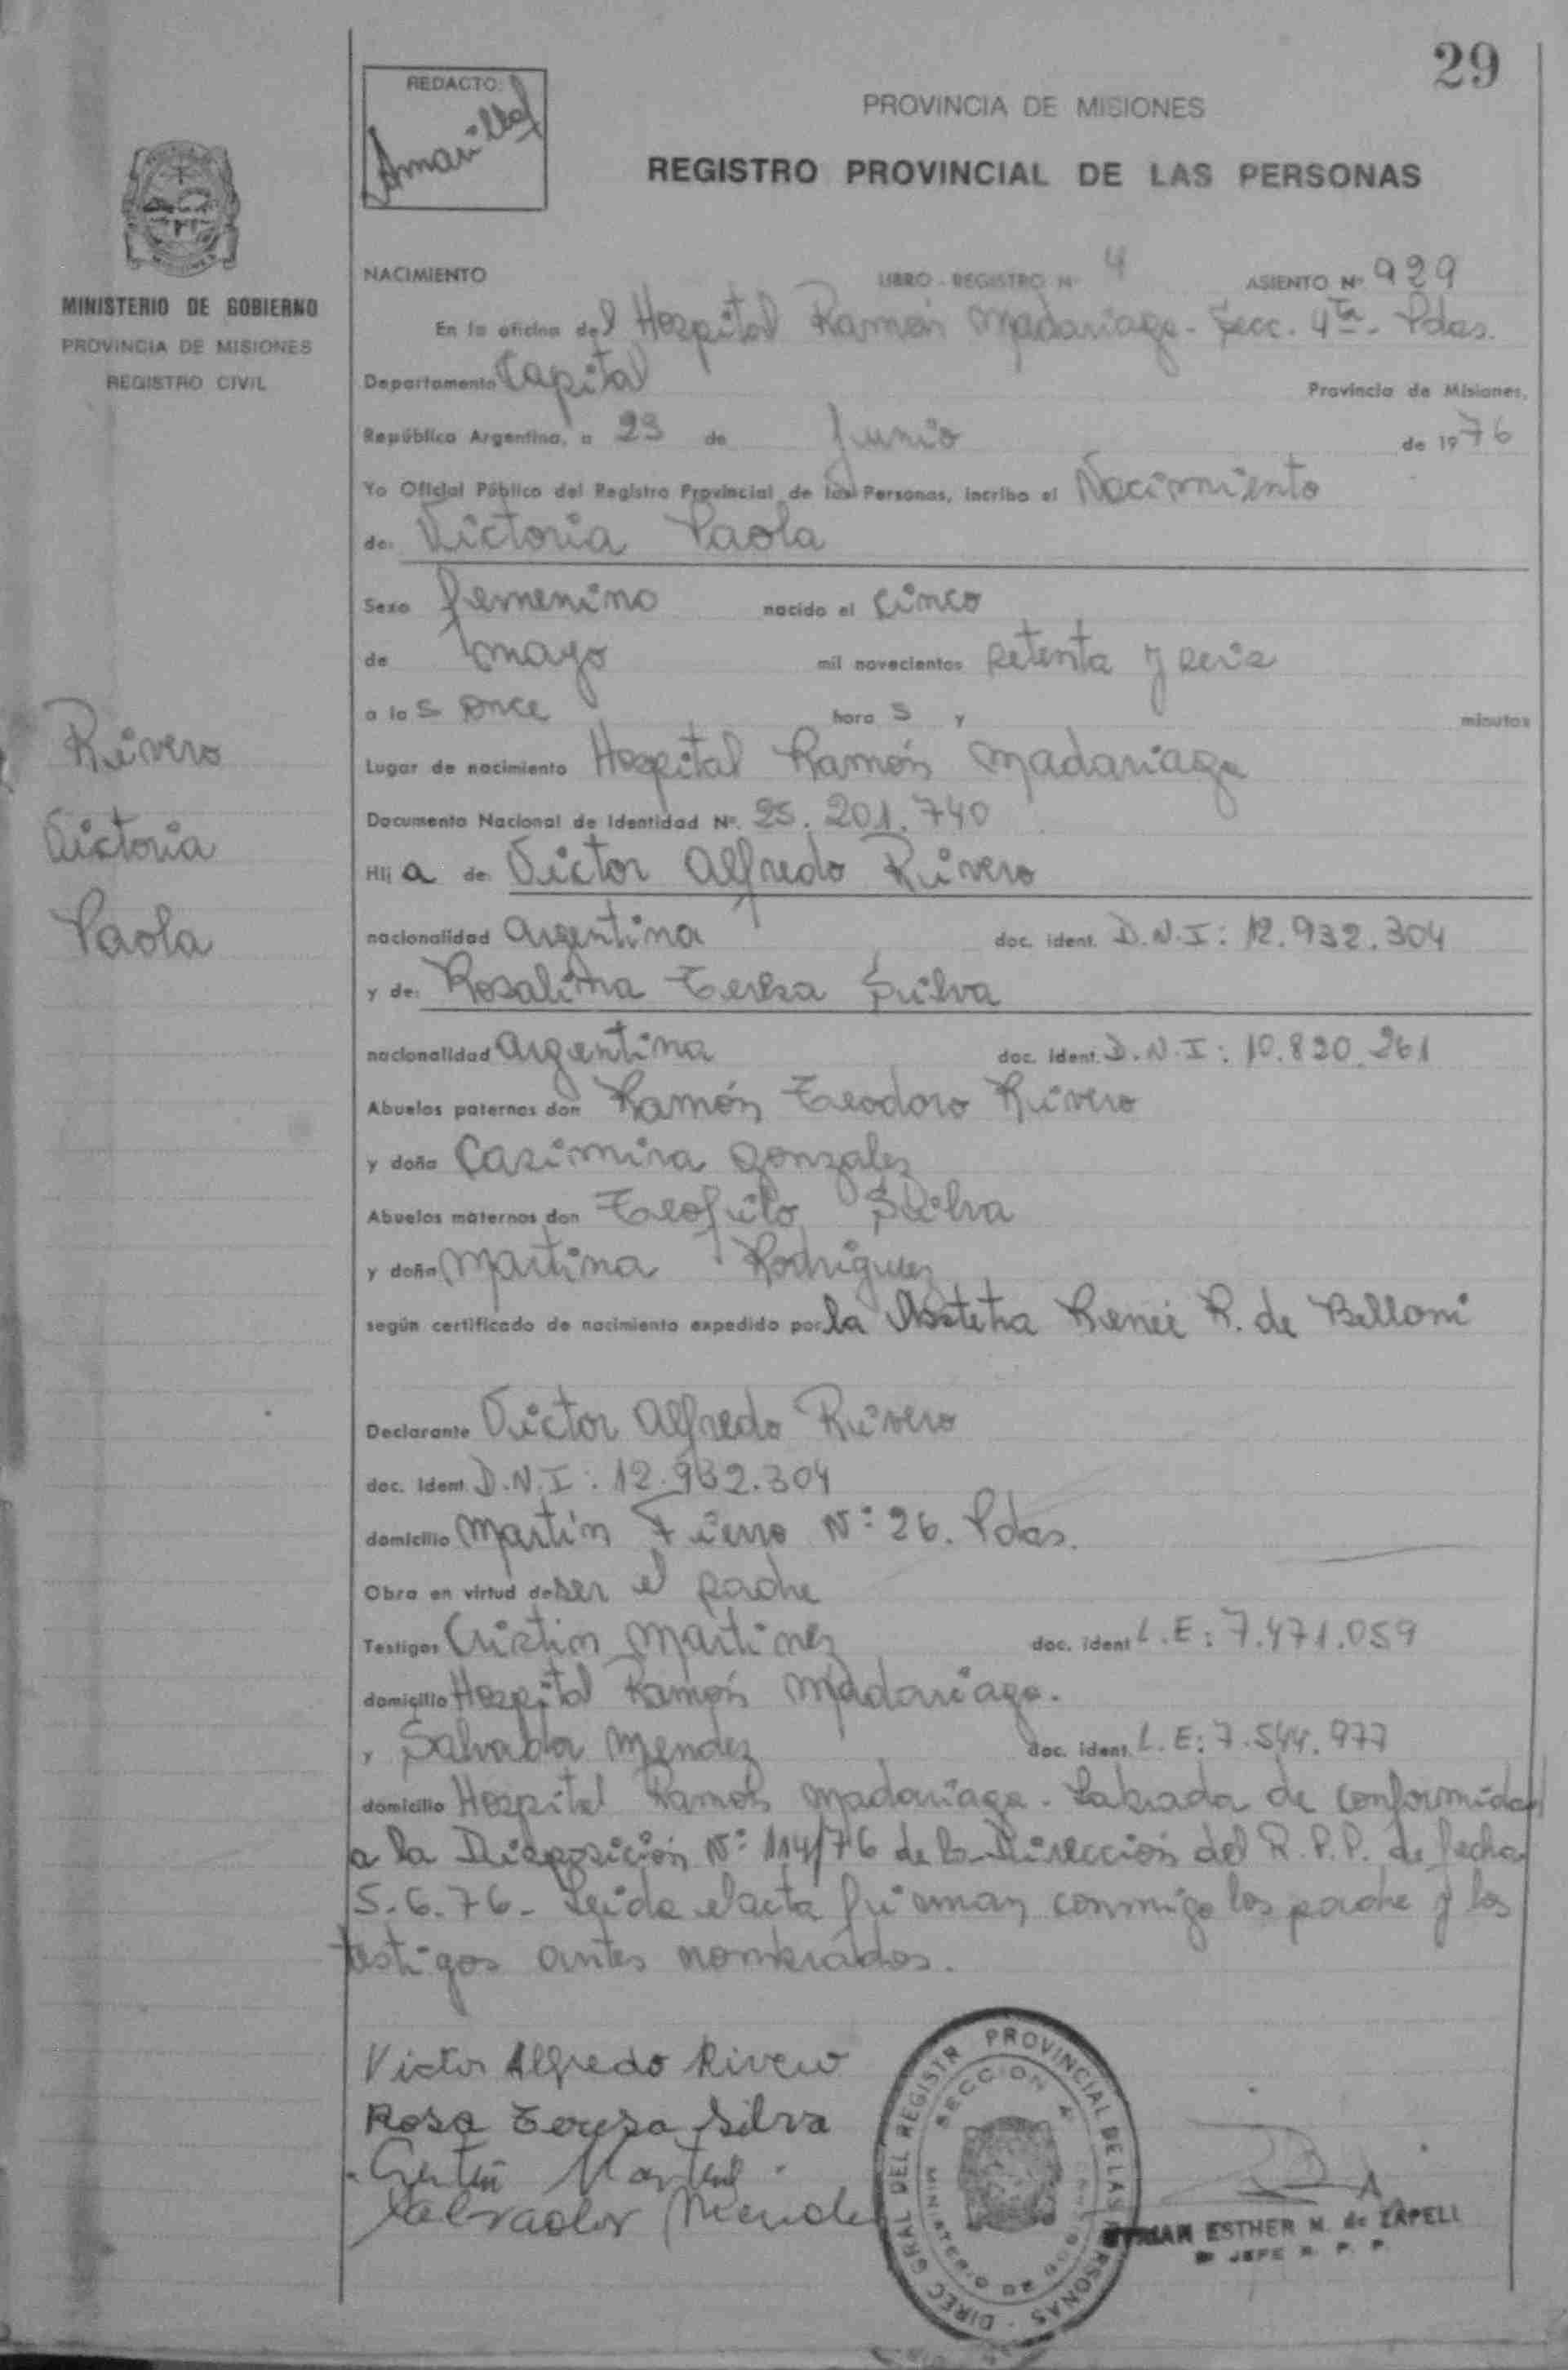 29
REDACTO:
PROVINCIA DE MISIONES
REGISTRO PROVINCIAL DE LAS PERSONAS
MISIONES
MINISTERIO DE GOBIERNO
PROVINCIA DE MISIONES
REGISTRO CIVIL
NACIMIENTO LIBRO - REGISTRO Nº 4 ASIENTO Nº 929
En la oficina del Hospital Ramón Madariaga - Secc. 4ta - Pdas.
Departamento Capital Provincia de Misiones,
República Argentina, a 23 de Junio de 1976
Yo Oficial Público del Registro Provincial de las Personas, incribo el Nacimiento
de: Victoria Paola
Sexo femenino nacido el cinco
de mayo mil novecientos setenta y seis
a las once horas y minutos
Rivero
Victoria
Paola
Lugar de nacimiento Hospital Ramón Madariaga
Documento Nacional de Identidad Nº. 25.201.740
Hija de: Victor Alfredo Rivero
nacionalidad argentina doc. ident. D.N.I: 12.932.304
y de: Rosalina Teresa Silva
nacionalidad argentina doc. ident. D.N.I: 10.820.261
Abuelos paternos don Ramón Teodoro Rivero
y doña Casimira Gonzalez
Abuelos maternos don Teofilo Silva
y doña Martina Rodriguez
según certificado de nacimiento expedido por la Obstetra Reneé R. de Belloni
Declarante Victor Alfredo Rivero
doc. ident. D.N.I: 12.932.304
domicilio Martín Fierro Nº 26. Pdas.
Obra en virtud de ser el padre
Testigos Cristin Martinez doc. ident L.E: 7.471.059
domicilio Hospital Ramón Madariaga.
y Salvador Mendez doc. ident. L.E: 7.544.977
domicilio Hospital Ramón Madariaga. Labrada de conformidad
a la Disposición Nº 114/76 de la Dirección del R.P.P. de fecha
5.6.76 - Leida el acta firman conmigo los padre y los
testigos antes nombrados.
Victor Alfredo Rivero
Rosa Teresa Silva
Salvador Mende
DIREC GRAL DEL REGISTR PROVINCIAL DE LAS PERSONAS
SECCION 4
MINISTERIO DE GOBIERNO
ESTHER M. de ZAPELL
JEFE R. P. P.